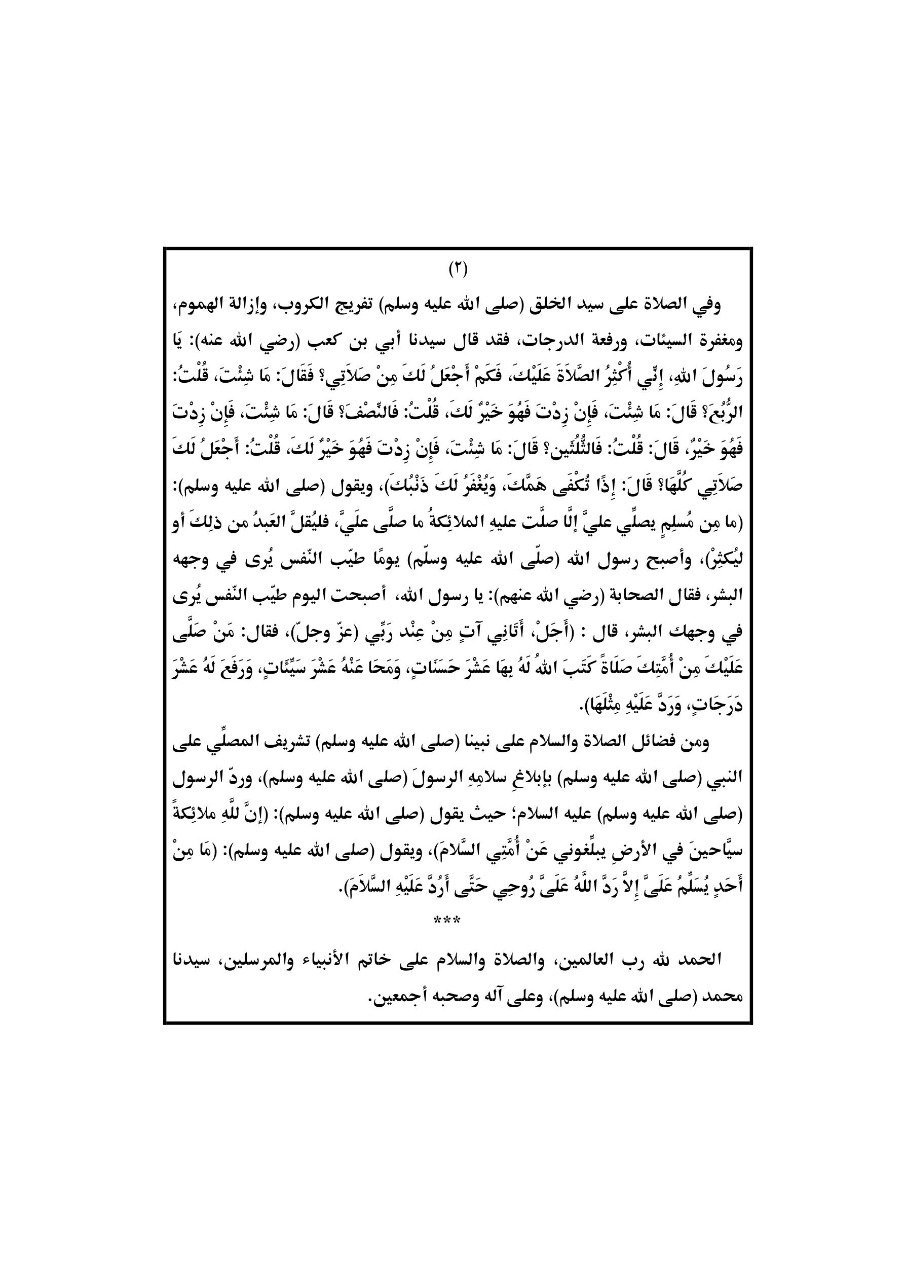 (٢)
وفي الصلاة على سيد الخلق (صلى الله عليه وسلم) تفريج الكروب، وإزالة الهموم،
ومغفرة السيئات، ورفعة الدرجات، فقد قال سيدنا أبي بن كعب (رضي الله عنه): يَا
رَسُولَ اللهِ، إِنِّي أُكْثِرُ الصَّلَاةَ عَلَيْكَ، فَكَمْ أَجْعَلُ لَكَ مِنْ صَلَاتِي؟ فَقَالَ: مَا شِئْتَ، قُلْتُ:
الرُّبُعَ؟ قَالَ: مَا شِئْتَ، فَإِنْ زِدْتَ فَهُوَ خَيْرٌ لَكَ، قُلْتُ: فَالنِّصْفَ؟ قَالَ: مَا شِئْتَ، فَإِنْ زِدْتَ
فَهُوَ خَيْرٌ، قَالَ: قُلْتُ: فَالثُّلُثَينِ؟ قَالَ: مَا شِئْتَ، فَإِنْ زِدْتَ فَهُوَ خَيْرٌ لَكَ، قُلْتُ: أَجْعَلُ لَكَ
صَلَاتِي كُلَّهَا؟ قَالَ: إِذًا تُكْفَى هَمَّكَ، وَيُغْفَرُ لَكَ ذَنْبُكَ)، ويقول (صلى الله عليه وسلم):
(ما مِن مُسلِمٍ يصلِّي عليَّ إلَّا صلَّت عليهِ الملائِكةُ ما صلَّى علَيَّ، فليُقلَّ العَبدُ من ذلِكَ أو
ليُكثِرْ)، وأصبح رسول الله (صلّى الله عليه وسلّم) يومًا طيّب النّفس يُرى في وجهه
البشر، فقال الصحابة (رضي الله عنهم): يا رسول الله، أصبحت اليوم طيّب النّفس يُرى
في وجهك البشر، قال : (أَجَلْ، أَتَانِي آتٍ مِنْ عِنْد رَبِّي (عزّ وجلّ)، فقال: مَنْ صَلَّى
عَلَيْكَ مِنْ أُمَّتِكَ صَلَاةً كَتَبَ اللهُ لَهُ بِهَا عَشْرَ حَسَنَاتٍ، وَمَحَا عَنْهُ عَشْرَ سَيِّئَاتٍ، وَرَفَعَ لَهُ عَشْرَ
دَرَجَاتٍ، وَرَدَّ عَلَيْهِ مِثْلَهَا).
ومن فضائل الصلاة والسلام على نبينا (صلى الله عليه وسلم) تشريف المصلِّي على
النبي (صلى الله عليه وسلم) بإبلاغِ سلامِهِ الرسولَ (صلى الله عليه وسلم)، وردّ الرسول
(صلى الله عليه وسلم) عليه السلام؛ حيث يقول (صلى الله عليه وسلم): (إنَّ للَّهِ ملائِكةً
سيَّاحينَ في الأرضِ يبلِّغوني عَنْ أُمَّتِي السَّلامَ)، ويقول (صلى الله عليه وسلم): (مَا مِنْ
أَحَدٍ يُسَلِّمُ عَلَىَّ إِلاَّ رَدَّ اللَّهُ عَلَىَّ رُوحِي حَتَّى أَرُدَّ عَلَيْهِ السَّلاَمَ).
***
الحمد لله رب العالمين، والصلاة والسلام على خاتم الأنبياء والمرسلين، سيدنا
محمد (صلى الله عليه وسلم)، وعلى آله وصحبه أجمعين.